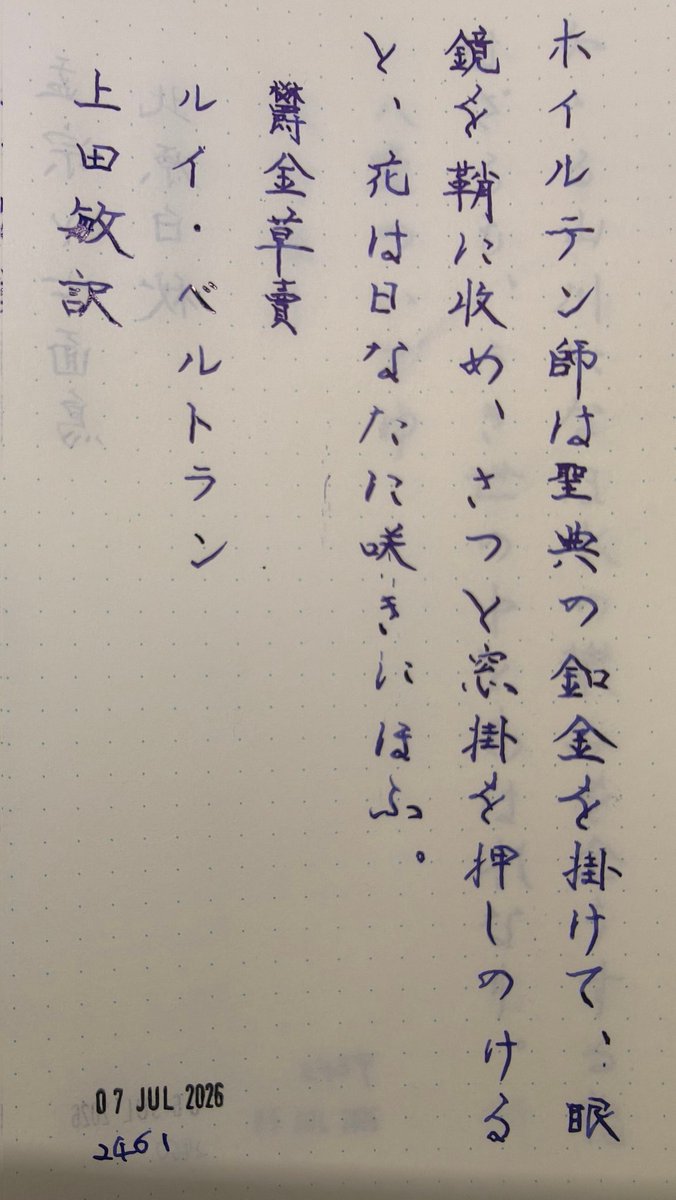 ホイルテン師は聖典の釦金を掛けて、眼
鏡を鞘に收め、さつと窓掛を押しのける
と、花は日なたに咲きにほふ。
欝金草賣
ルイ・ベルトラン
上田敏訳
07 JUL 2026
2461